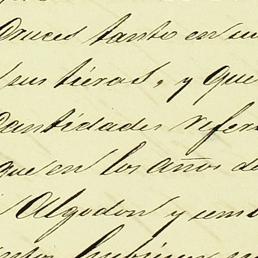 cruces tanto en su
sus tieras, y que
Cantidades refer
que en los años de
Algodon y sem